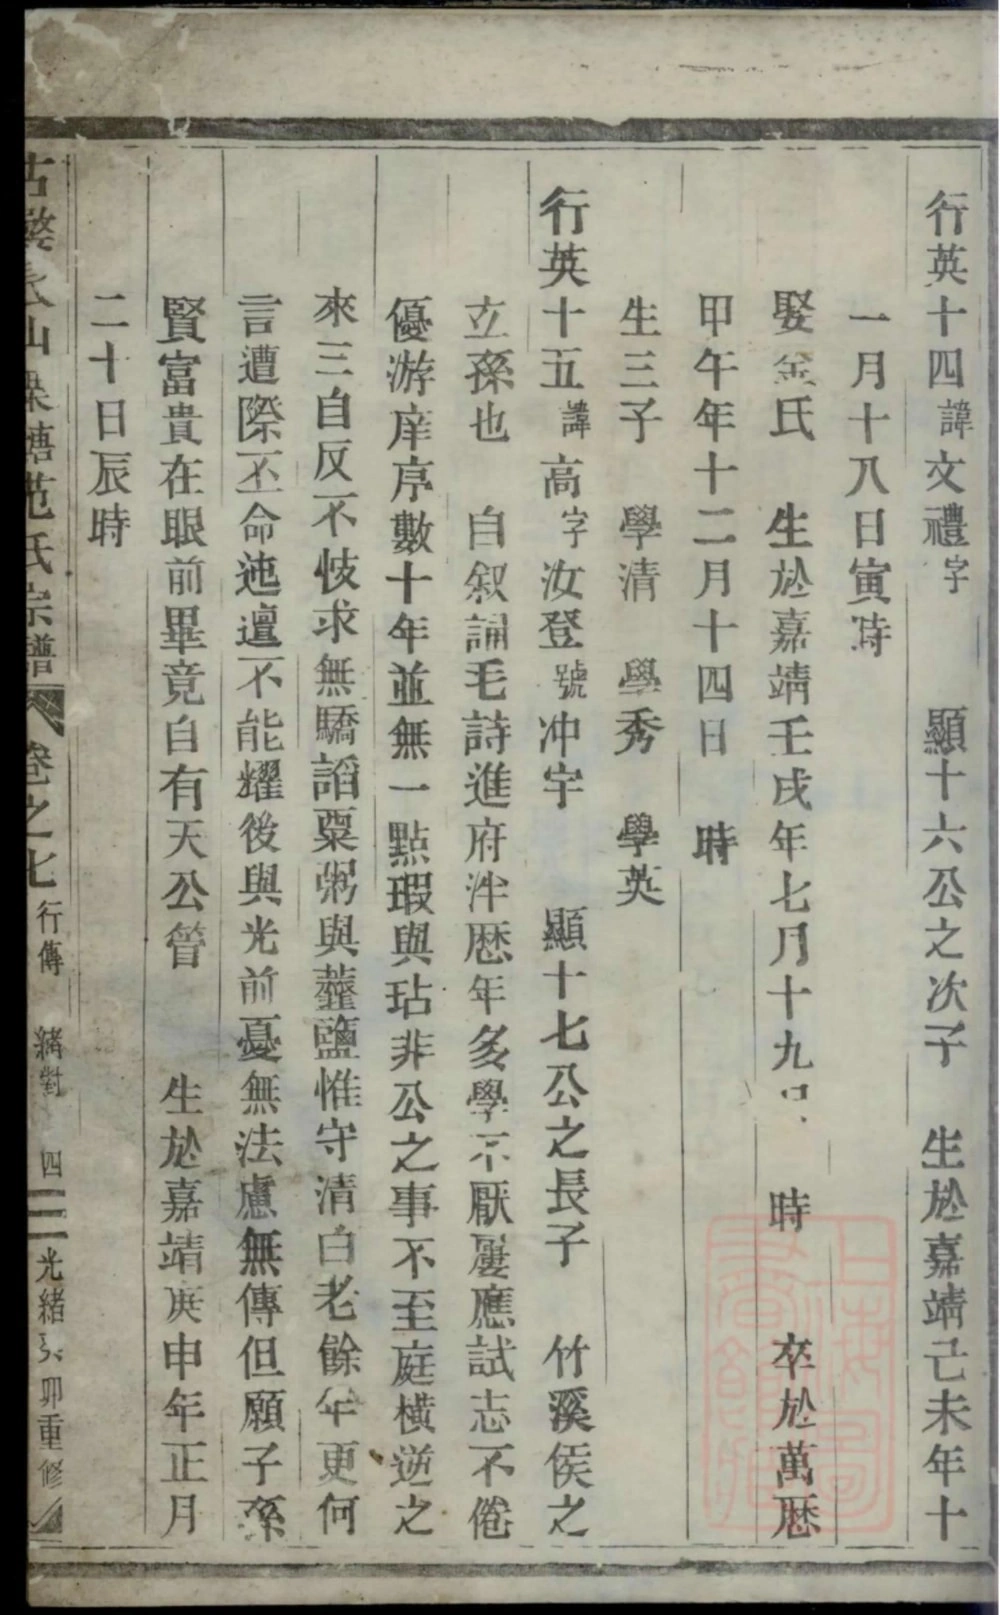 行英十四諱文禮字 顯十六公之次子 生於嘉靖己未年十
一月十八日寅時
娶金氏 生於嘉靖壬戌年七月十九日 時 卒於萬曆
甲午年十二月十四日 時
生三子 學清 學秀 學英
行英十五諱高字汝登號冲宇 顯十七公之長子 竹溪侯之
立孫也 自叙誦毛詩進府泮歴年多學不厭屢應試志不倦
優游庠序數十年並無一點瑕與玷非公之事不至庭橫逆之
來三自反不忮求無驕謟粟粥與虀鹽惟守清白老餘年更何
言遭際丕命迍邅不能耀後與光前憂無法慮無傳但願子孫
賢富貴在眼前畢竟自有天公管 生於嘉靖庚申年正月
二十日辰時
古婺 山 塘范氏宗譜 卷之七 行傳 四 光緒 卯重修